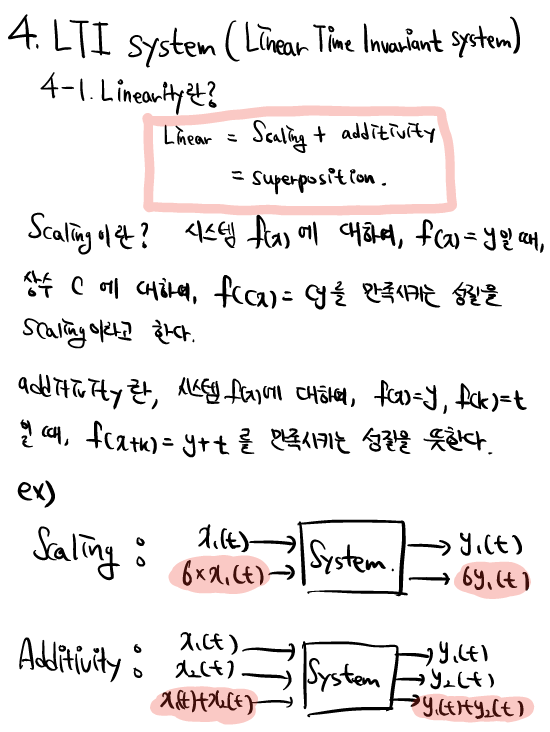 4. LTI system (Linear Time Invariant system)
4-1. Linearity란?
Linear = Scaling + additivity
= superposition.
Scaling이란? 시스템 f(x)에 대하여, f(x)=y일 때,
상수 C에 대하여, f(Cx)=Cy를 만족시키는 성질을
scaling이라고 한다.
additivity란, 시스템 f(x)에 대하여, f(x)=y, f(k)=t
일 때, f(x+k)=y+t를 만족시키는 성질을 뜻한다.
ex)
Scaling : x₁(t) → System. → y₁(t)
6×x₁(t) → 6y₁(t)
Additivity : x₁(t) → System → y₁(t)
x₂(t) → y₂(t)
x₁(t)+x₂(t) → y₁(t)+y₂(t)